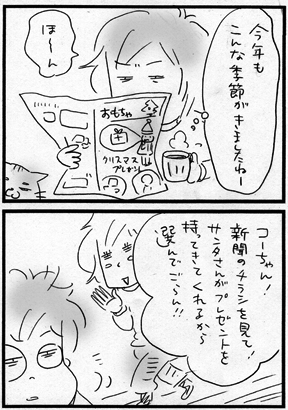 今年も
こんな季節が
きましたねー
ほーん
おもちゃ
クリスマス
プレゼント
コーちゃん!
新聞のチラシを見て!
サンタさんがプレゼントを
持ってきてくれるから
選んでごらん!!